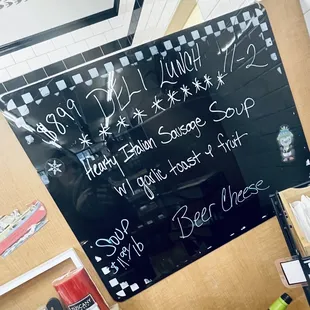 $8.99 DELI LUNCH 11-2
Hearty Italian Sausage Soup
w/ garlic toast & fruit
Beer Cheese
Soup